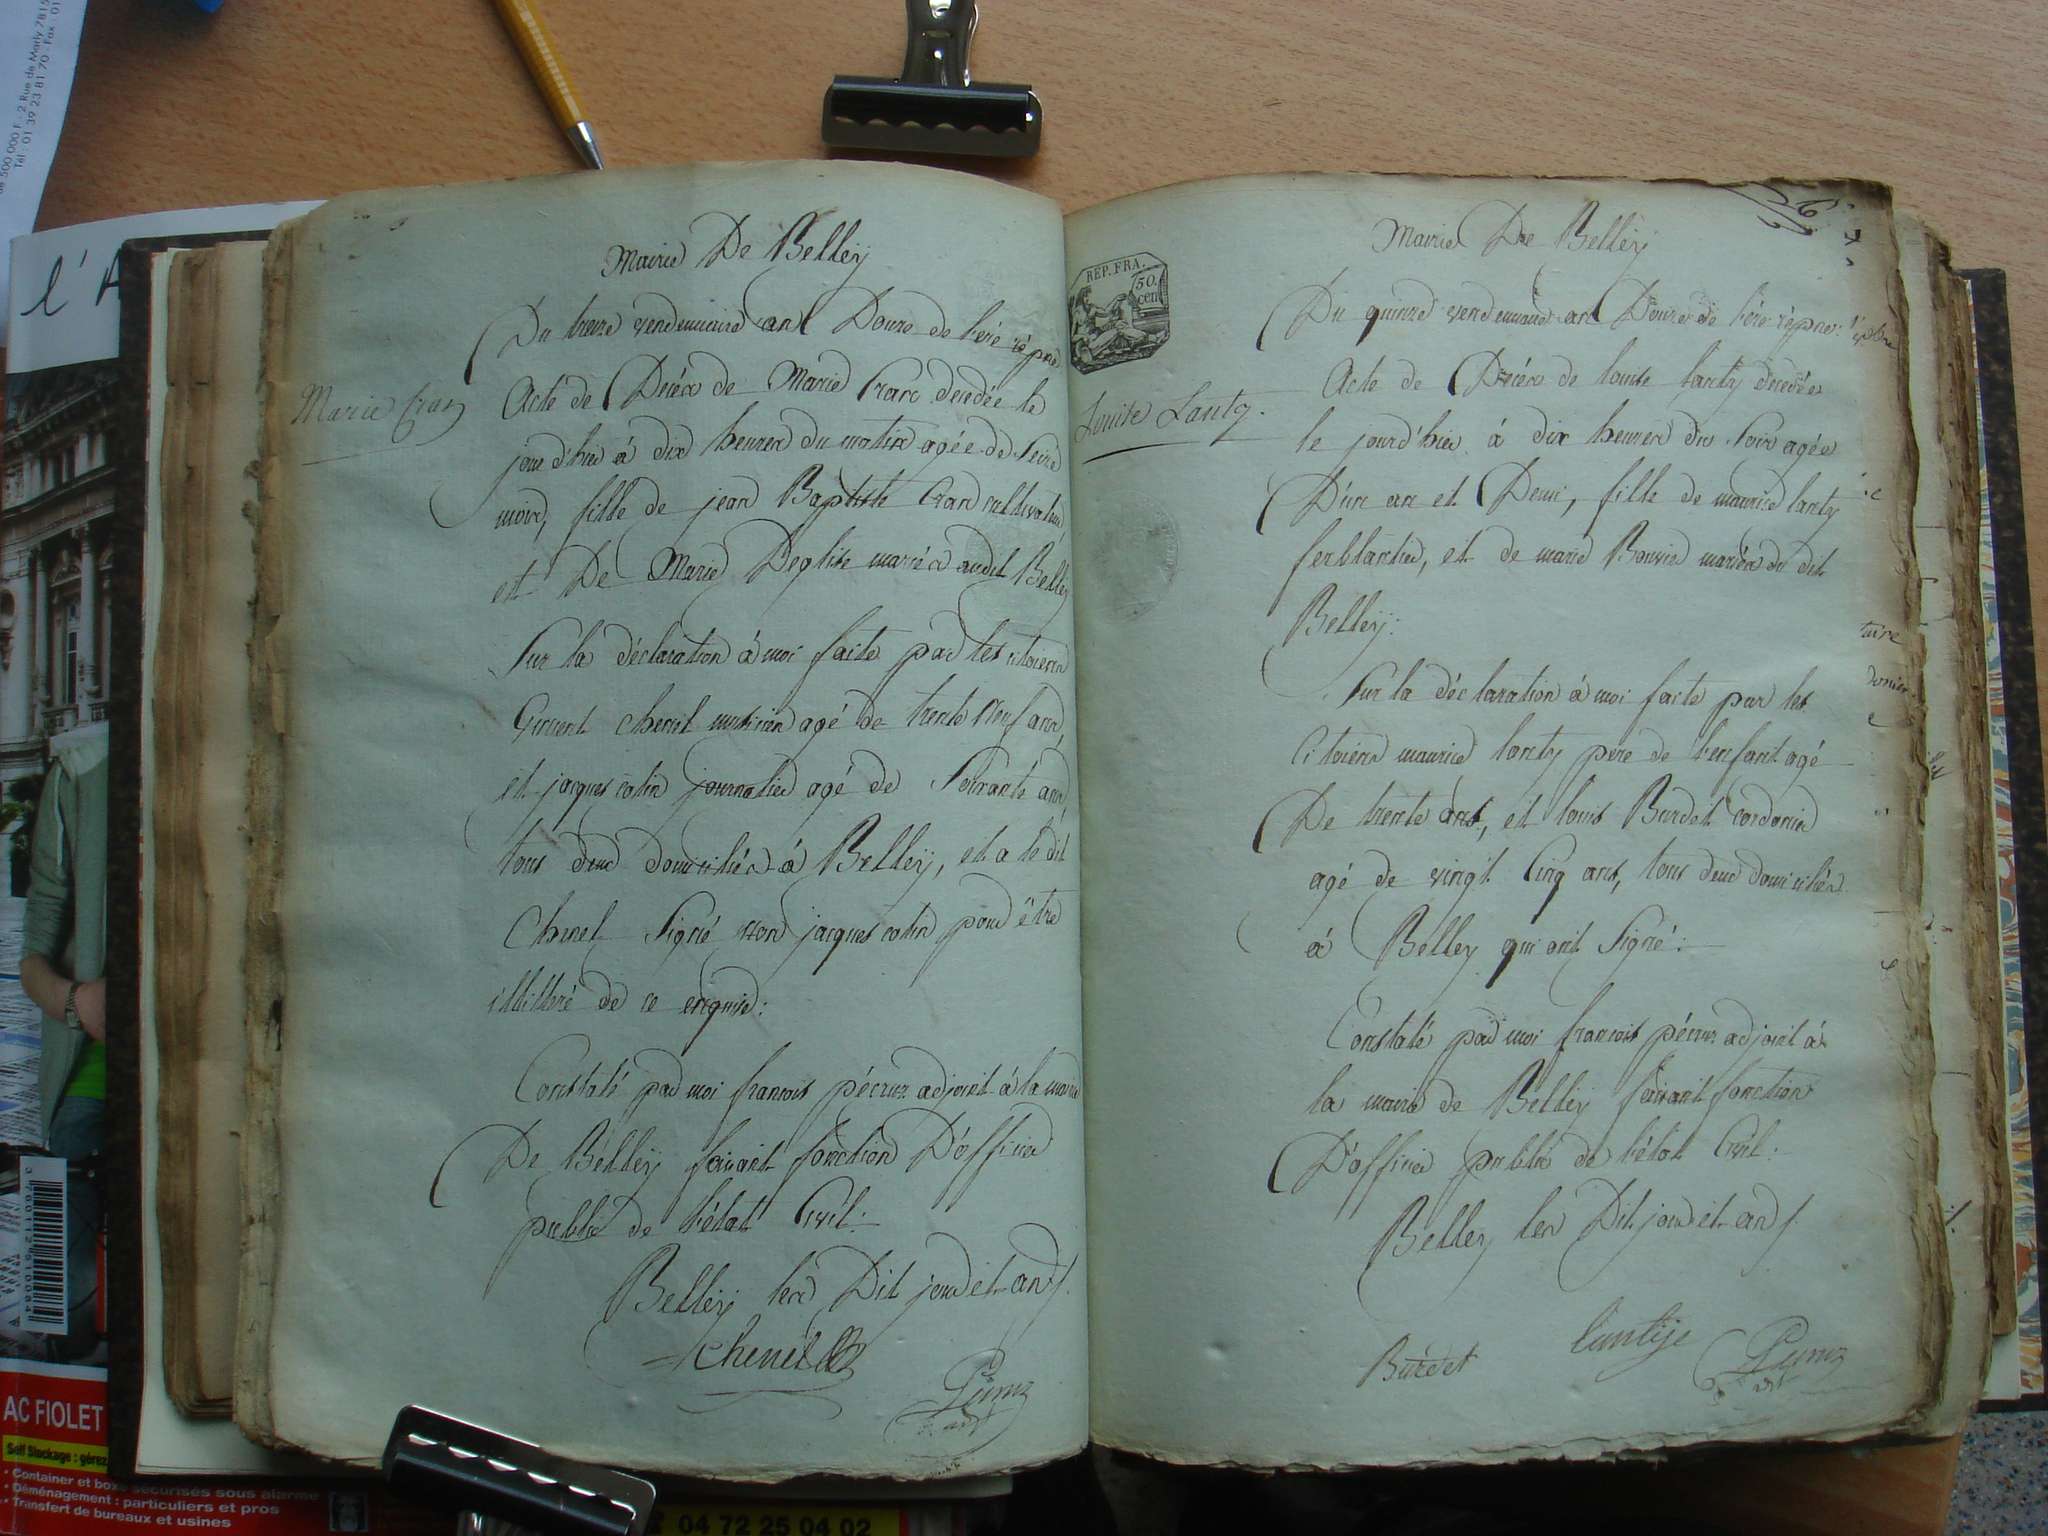 Mairie De Belleÿ
Du treize vendemiaire an Douze de l'ère répne
Marie Craz
Acte de Décés de Marie Craz décedée le
jour d'hier à dix heures du matin agée de Seize
mois, fille de jean Baptiste Craz cultivateur
et De Marie Deglise mariés audit Belleÿ
Sur la déclaration à moi faite par les citoiens
chenel musicien agé de trente Neuf ans,
et jacques cotin journalier agé de Soixante ans
tous deux domiciliés à Belleÿ, et a le dit
Chenel Signé non jacques cotin pour être
illitteré de ce enquis:
Constaté par moi françois pécruz adjoint à la mairie
De Belleÿ faisant fonction D'officier
public de l'état Civil:
Belleÿ les Dit jour et an /.
chenel
Mairie De Belleÿ
REP. FRA.
50.
cen
Du quinze vendemiaire an Douze de l'ère répne:
Louise Lanty.
Acte de Décés de louise lanty decedée
le jourd'hier à dix heures du Soir agée
D'un an et Demi, fille de maurice lanty
ferblantier, et de marie Bouvier mariés du dit
Belleÿ:
Sur la déclaration à moi faite par les
Citoiens maurice lanty pere de l'enfant agé
De trente ans, et louis Burdet cordonier
agé de vingt Cinq ans, tous deux domiciliés
à Belley qui ont Signé:
Constaté par moi françois pécruz adjoint à
la mairie de Belley faisant fonction
D'officier public de l'état Civil:
Belley les Dit jour et an /.
Burdet
lantije
taire
2 Rue de Marly
Tél : 01 39 23 81 70 - Fax
l'A
AC FIOLET
Self Stockage : gérez
• Container et box sécurisés sous alarme
• Déménagement : particuliers et pros
• Transfert de bureaux et usines
04 72 25 04 02